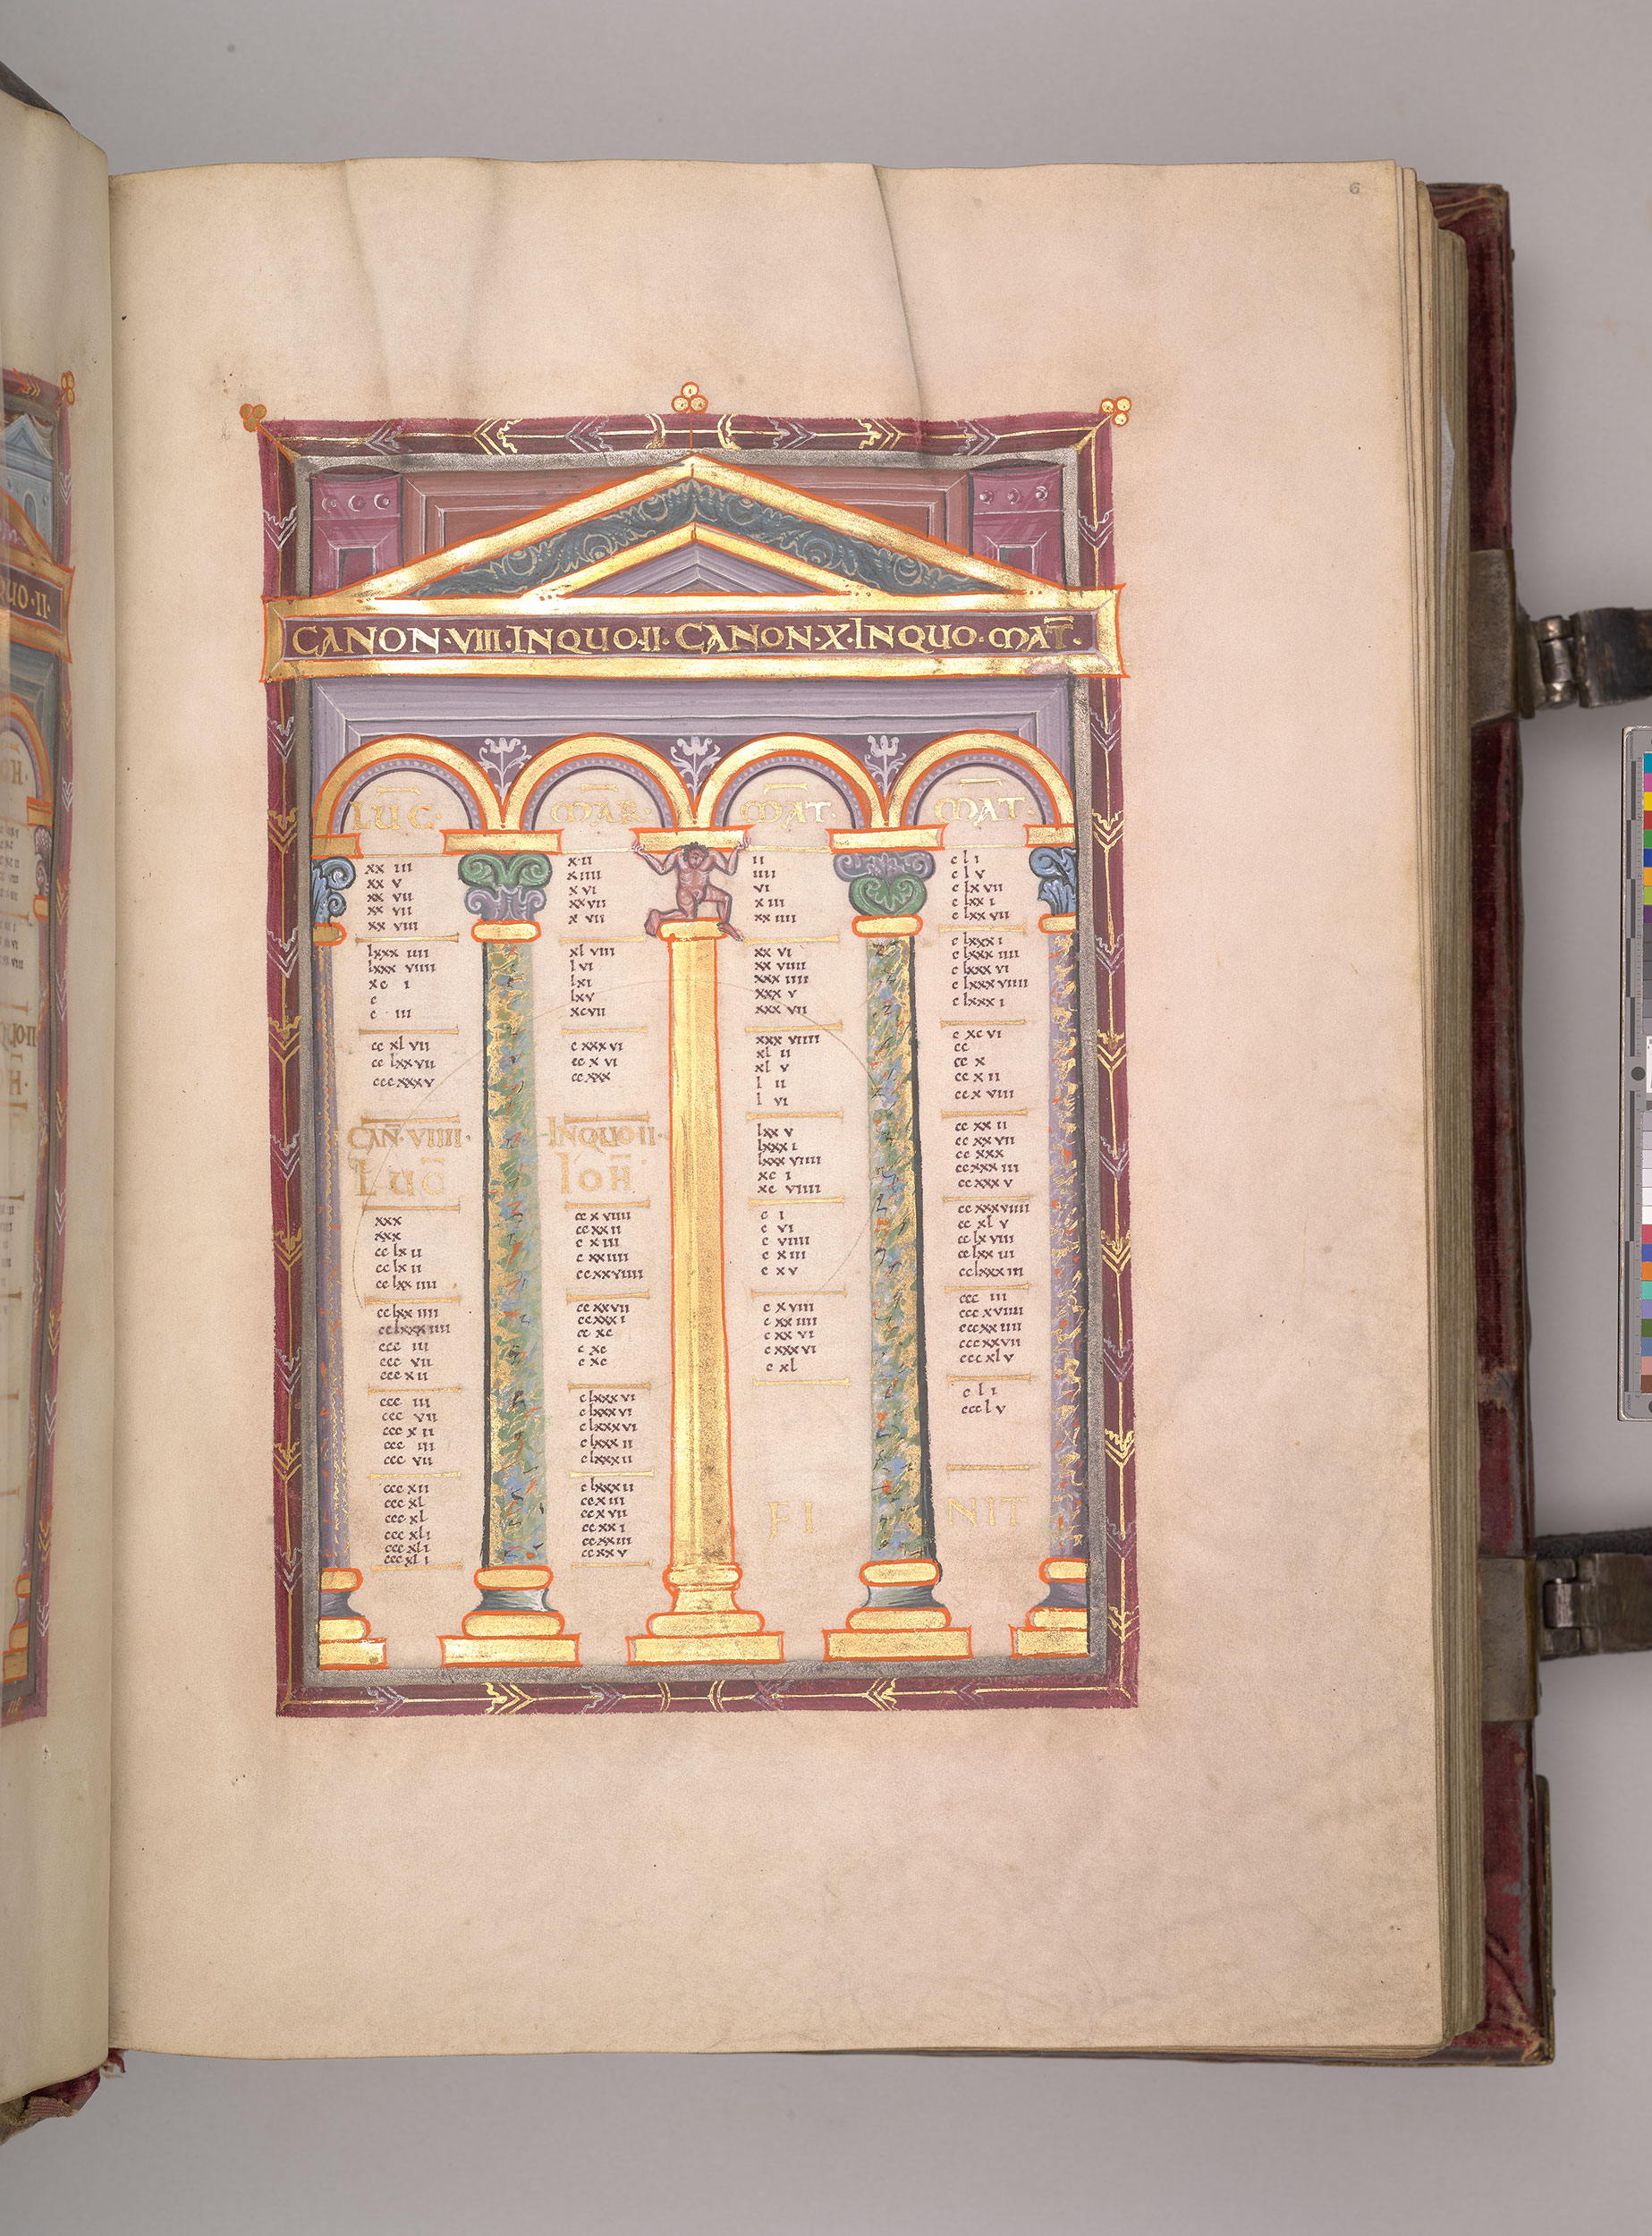 6
CANON·VIII·INQUO·II· CANON·X·INQUO·MAT̄·
LUC·
xx iii
xx v
xx vii
xx vii
xx viii
lxxx iiii
lxxx viiii
xc i
c
c iii
cc xl vii
cc lxx vii
ccc xxx v
CAN̄·VIIII·
LUC̄
xxx
xxx
cc lx ii
cc lx ii
cc lxx iiii
cc lxx iiii
cc lxxx iiii
ccc iii
ccc vii
ccc x ii
ccc iii
ccc vii
ccc x ii
ccc iii
ccc vii
ccc x ii
ccc xl
ccc xl
ccc xl i
ccc xl i
ccc xl i
MAR·
x ii
x iiii
x vi
xx vii
x vii
xl viii
l vi
lx i
lx v
xc vii
c xxx vi
cc x vi
cc xxx
INQUO II·
IOH̄
cc x viiii
cc xx ii
c x iii
c xx iiii
cc xx viiii
cc xx vii
cc xxx i
cc xc
c xc
c xc
c lxxx vi
c lxxx vi
c lxxx vi
c lxxx ii
c lxxx ii
c lxxx ii
cc x iii
cc x vii
cc xx i
cc xx iii
cc xx v
MAT·
ii
iiii
vi
x iii
xx iiii
xx vi
xx viiii
xxx iiii
xxx v
xxx vii
xxx viiii
xl ii
xl v
l ii
l vi
lxx v
lxxx i
lxxx viiii
xc i
xc viiii
c i
c vi
c viiii
c x iii
c x v
c x viii
c xx iiii
c xx vi
c xxx vi
c xl
FI
MAT·
c l i
c l v
c lx vii
c lxx i
c lxx vii
c lxxx i
c lxxx iiii
c lxxx vi
c lxxx viiii
c lxxx i
c xc vi
cc
cc x
cc x ii
cc x viii
cc xx ii
cc xx vii
cc xxx
cc xxx iii
cc xxx v
cc xxx viiii
cc xl v
cc lx viii
cc lxx iii
cc lxxx iii
ccc iii
ccc x viiii
ccc xx iiii
ccc xx vii
ccc xl v
c l i
ccc l v
NIT